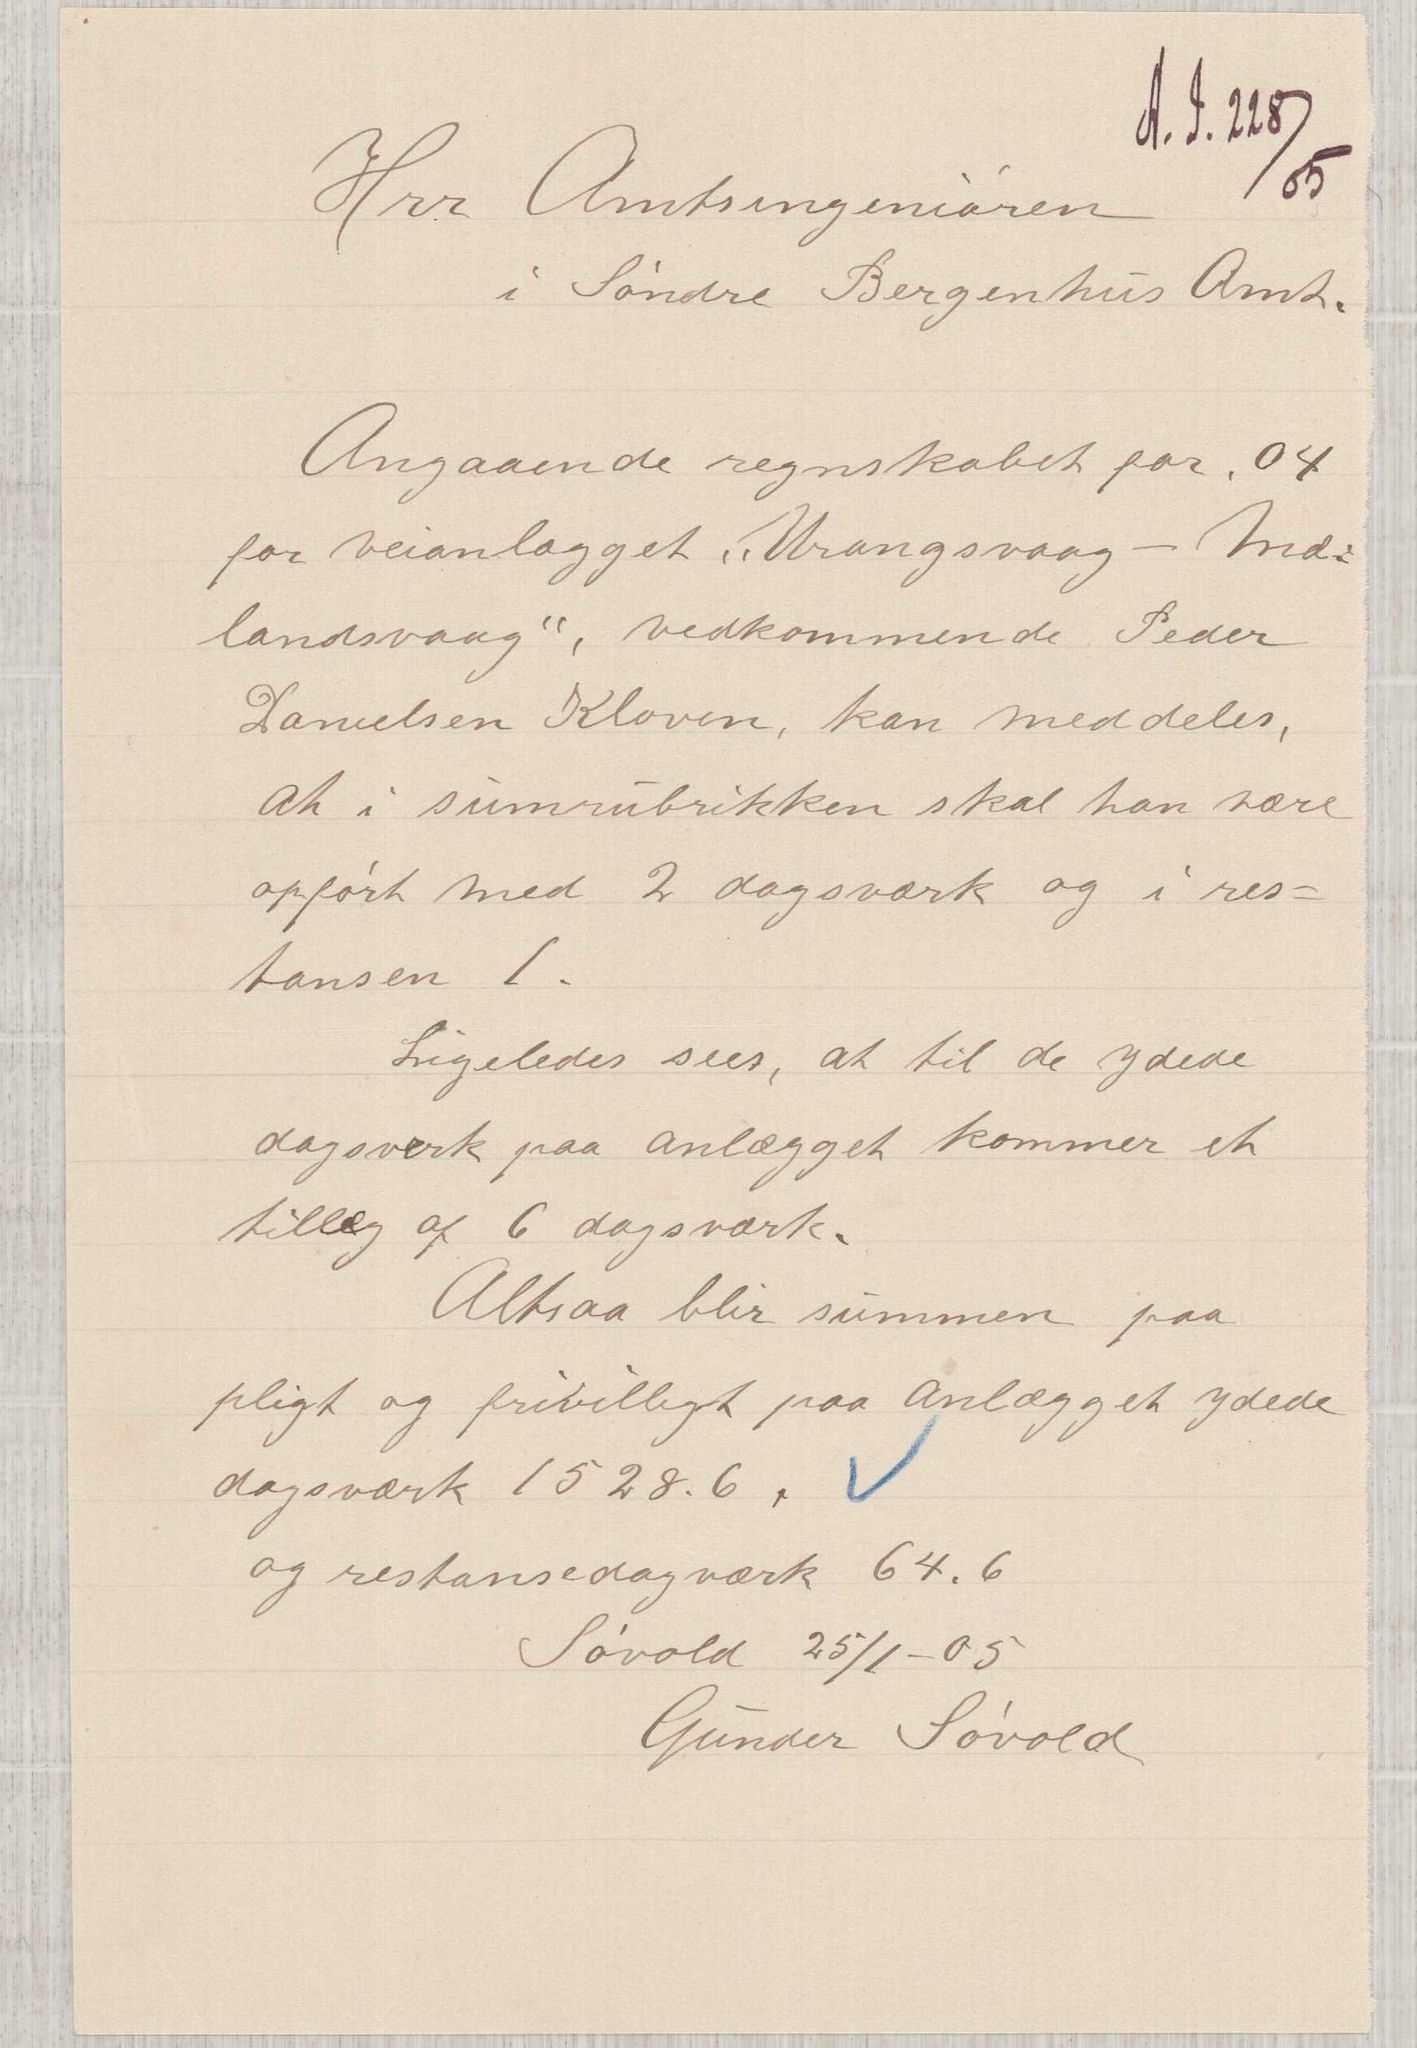 A. I. 228/05
Hrr Amtsingeniören
i Söndre Bergenhus Amt.
Angaaende regnskabet for . 04
for veianlægget „Urangsvaag – Mæ=
landsvaag", vedkommende Peder
Danielsen Kloven, kan meddeles,
at i sumrubrikken skal han være
opfört med 2 dagsværk og i res=
tansen 1.
Ligeledes sees, at til de ydede
dagsverk paa anlægget kommer et
tillæg af 6 dagsværk.
Altsaa blir summen paa
pligt og frivilligt paa anlægget ydede
dagsværk 1528.6.
og restansedagværk 64.6
Sövold 25/1-05
Gunder Sövold